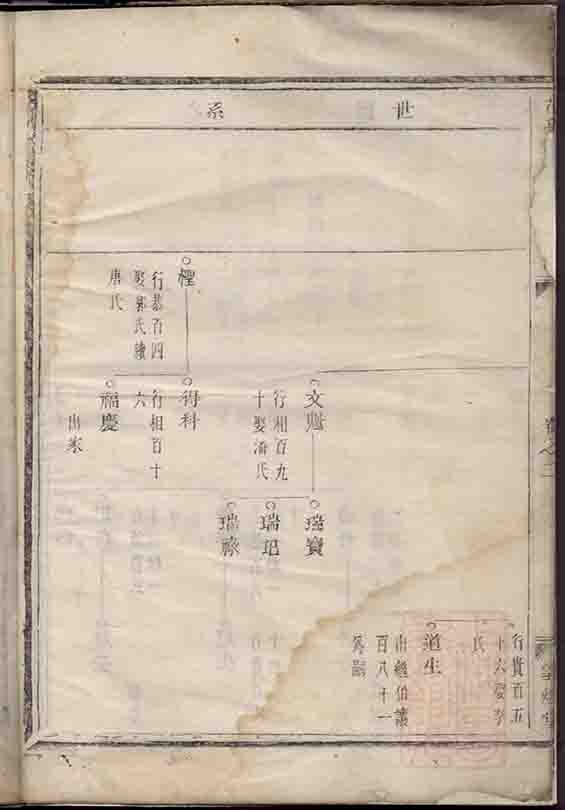 世系
行貴百五
十六娶李
氏
道生
出繼伯讓
百八十一
為嗣
文魁
行相百九
十娶潘氏
瑞寶
瑞玘
瑞祿
行恭百四
娶郭氏續
唐氏
得科
行相百十
六
福慶
出家